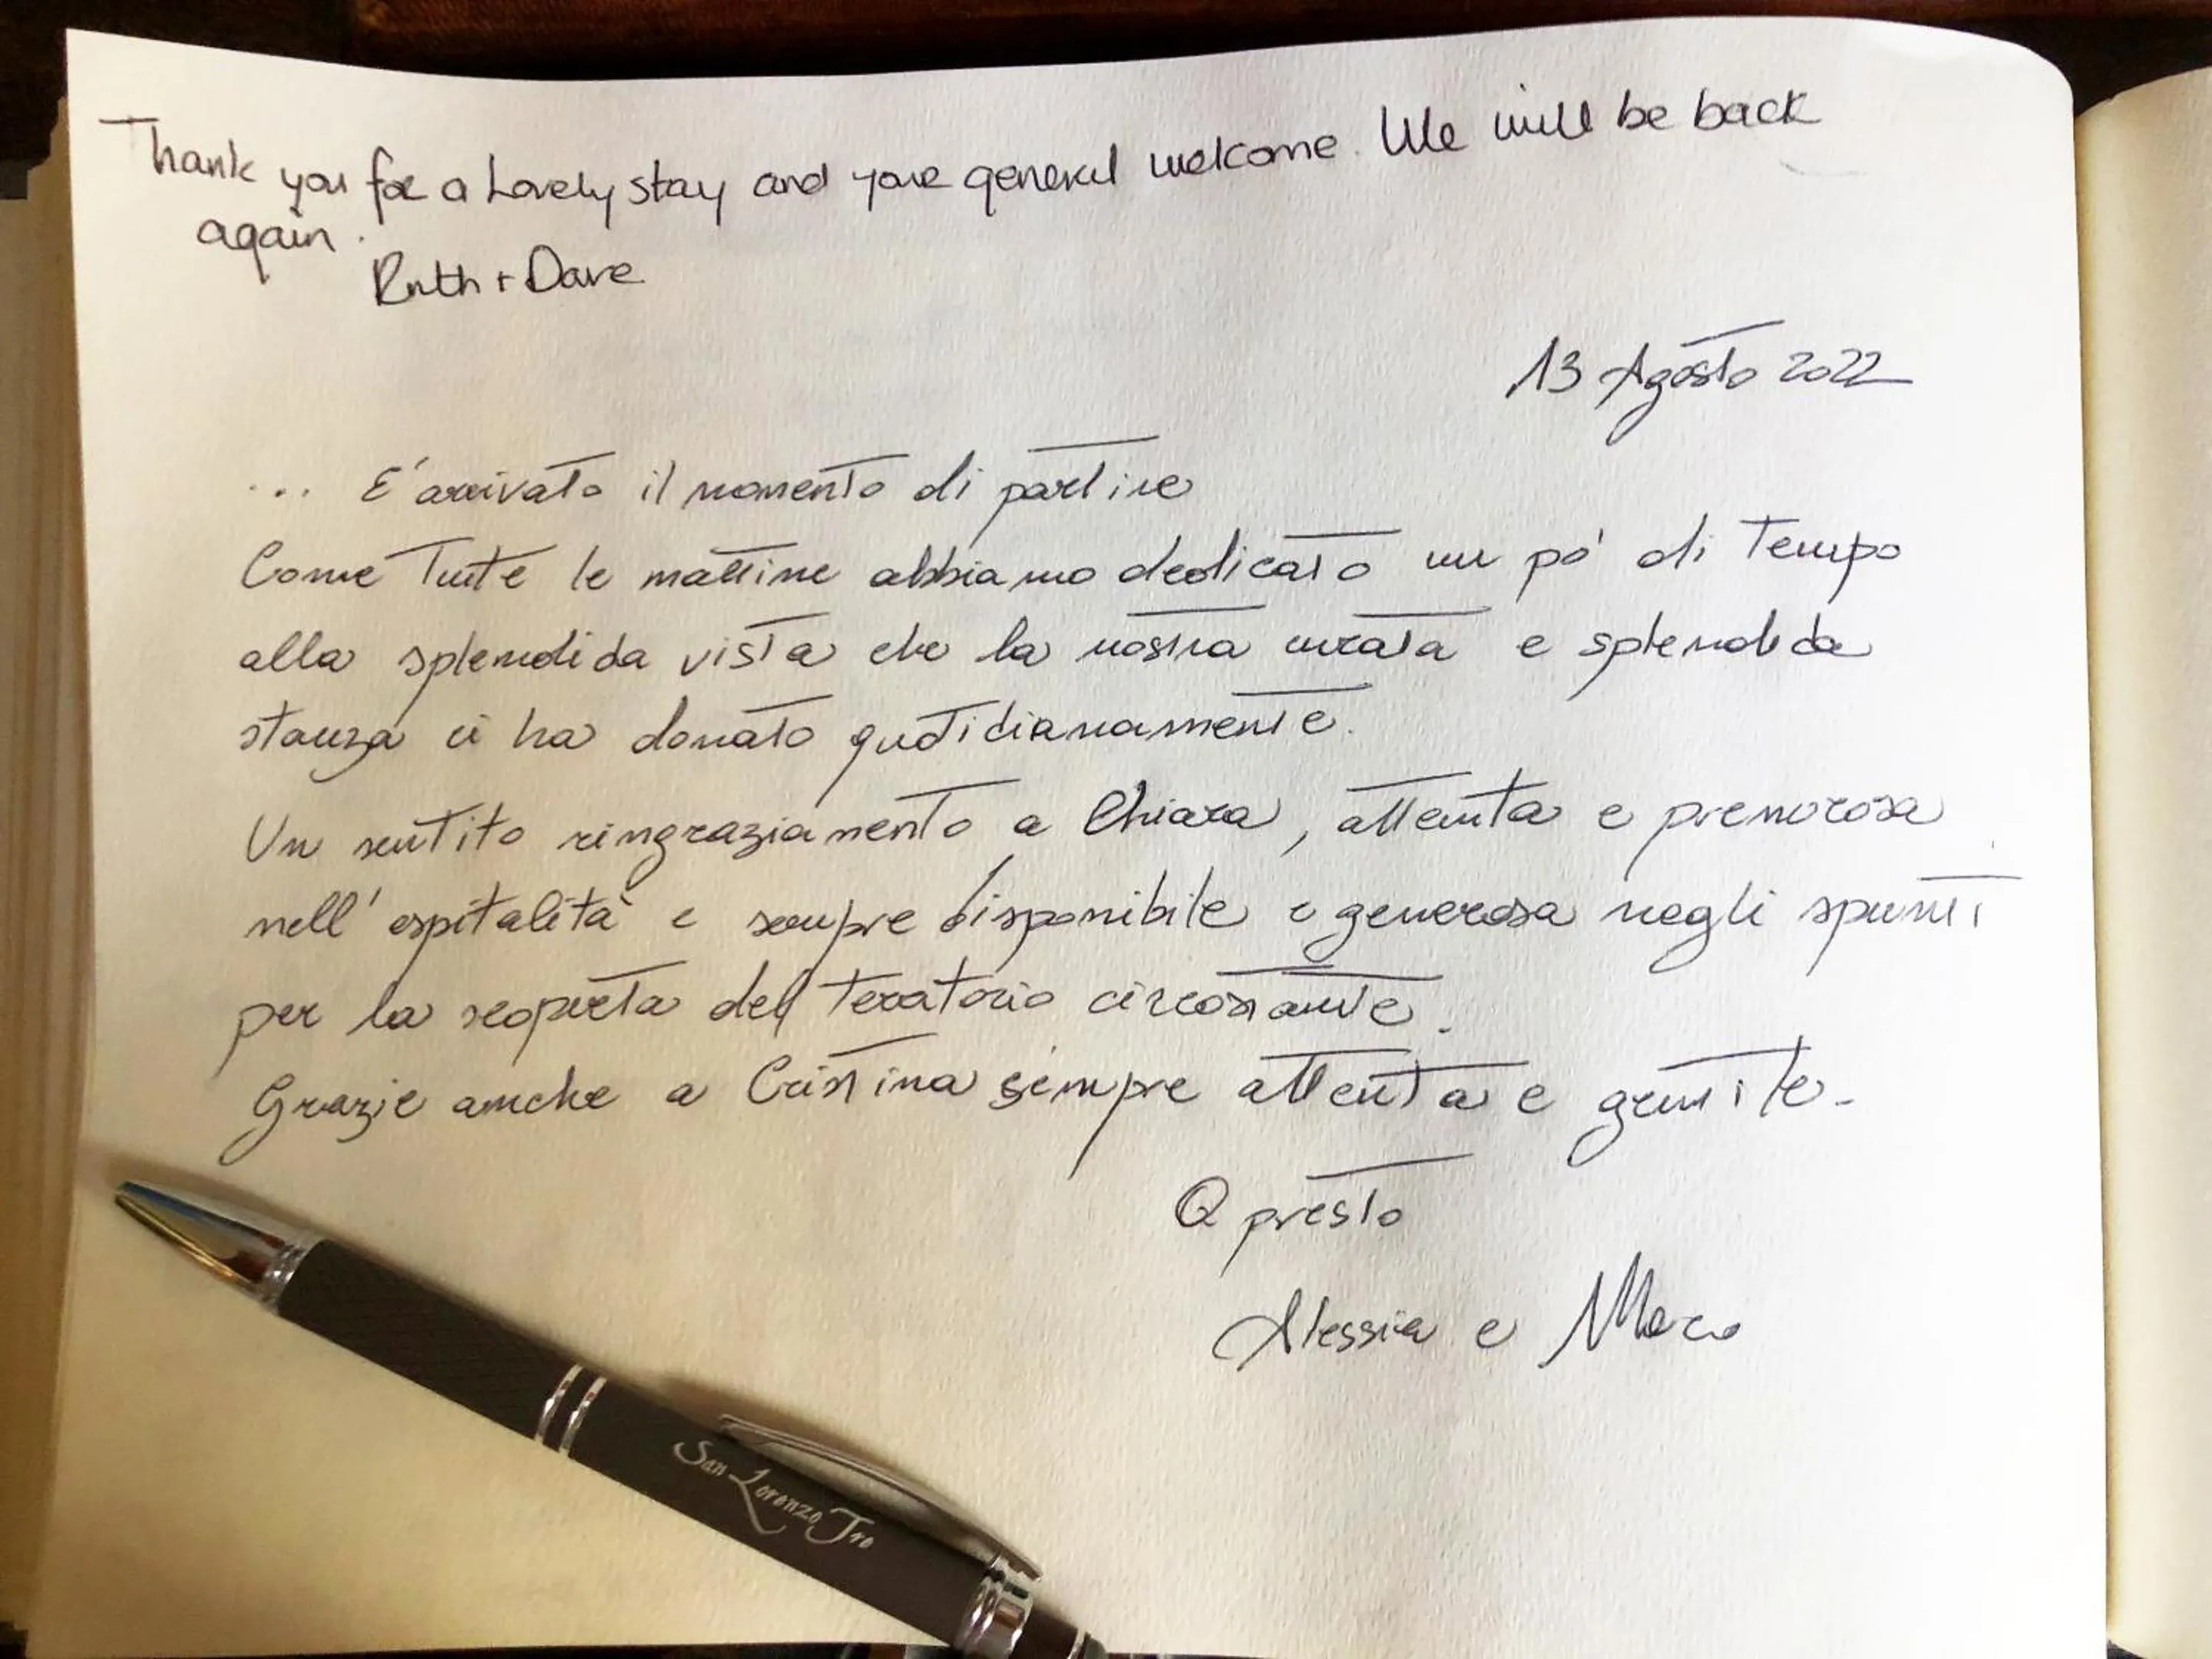 Thank you for a Lovely stay and your general welcome. We will be back
again.
Ruth + Dave
13 Agosto 2022
... E' arrivato il momento di partire
Come Tutte le mattine abbiamo dedicato un pò di Tempo
alla splendida vista che la nostra curata e splendida
stanza ci ha donato quotidianamente.
Un sentito ringraziamento a Chiara, attenta e premurosa
nell'ospitalità e sempre disponibile e generosa negli spunti
per la scoperta del territorio circostante.
Grazie anche a Cristina sempre attenta e gentile.
A presto
Alessia e Marco
San Lorenzo Tro